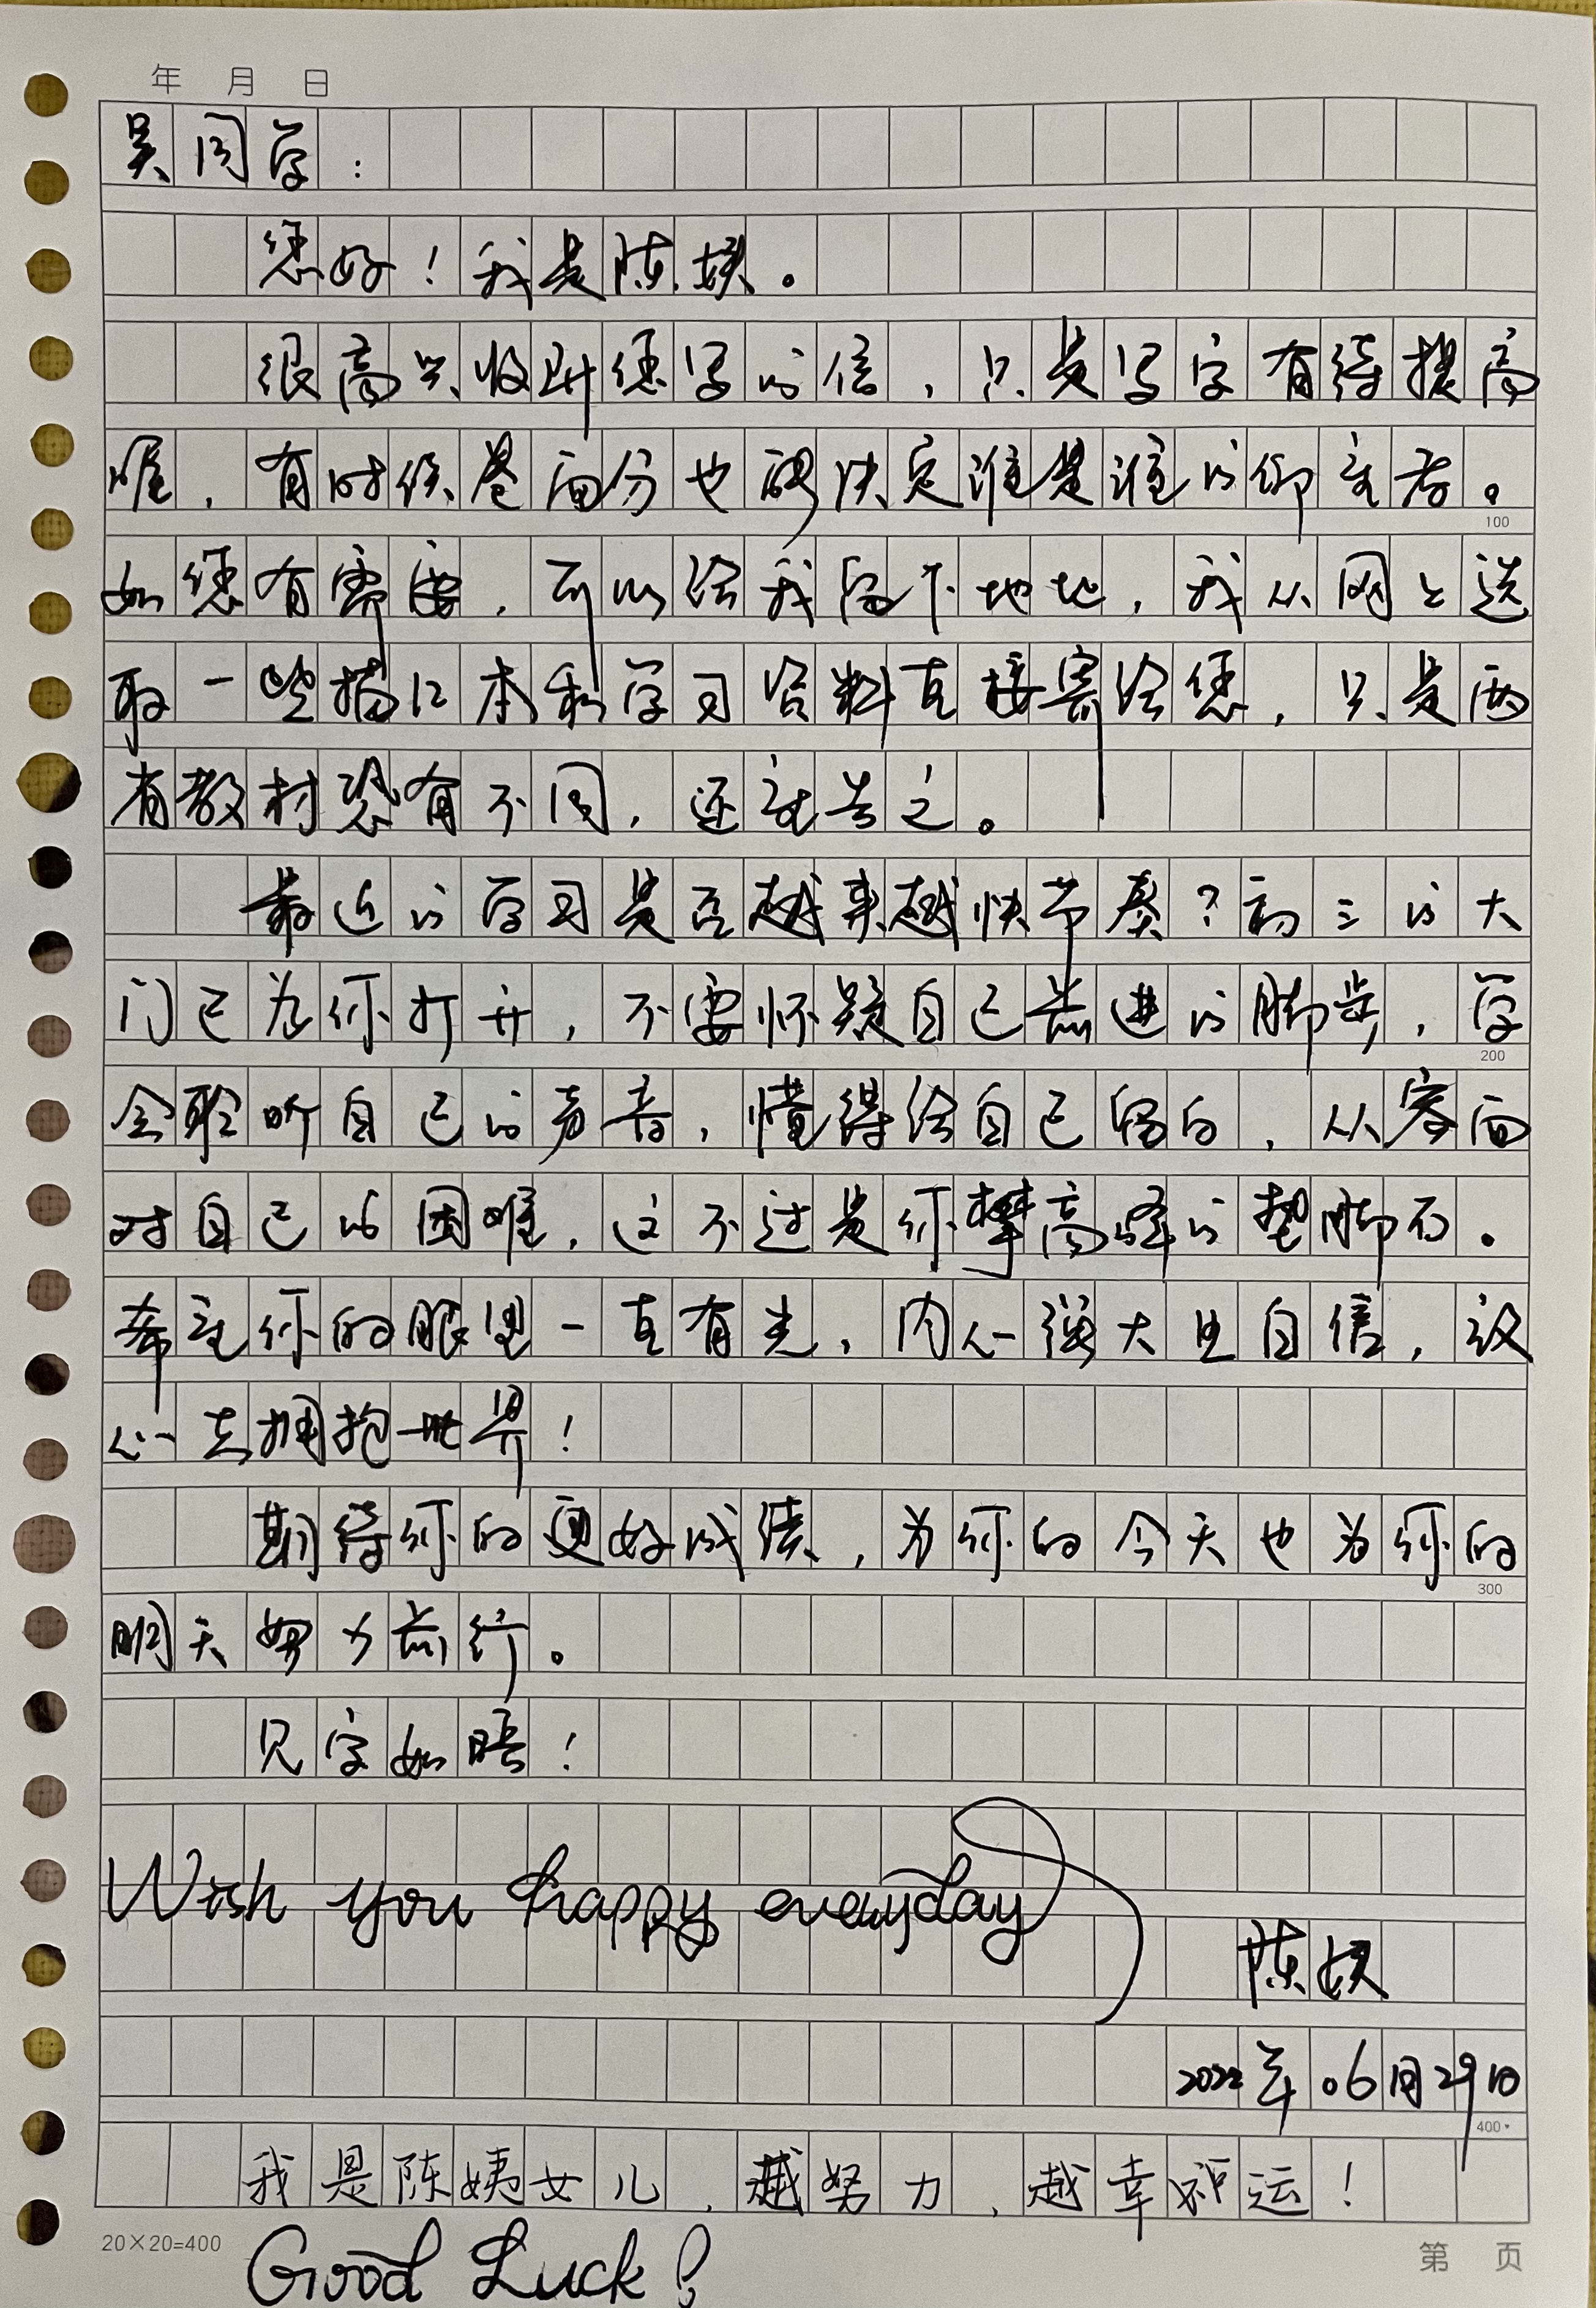 年 月 日
吴同学：
您好！我是陈姨。
很高兴收到您写的信，只是写字有待提高
喔，有时候卷面分也确决定谁是谁的仰望者。
如您有需要，可以给我留下地址，我从网上选
取一些描红本和学习资料直接寄给您，只是两
省教材恐有不同，还望告之。
最近的学习是否越来越快节奏？初三的大
门已为你打开，不要怀疑自己前进的脚步，学
会聆听自己的声音，懂得给自己留白，从容面
对自己的困难，这不过是你攀高峰的垫脚石。
希望你的眼里一直有光，内心强大且自信，议
心去拥抱世界！
期待你的更好成绩，为你的今天也为你的
明天努力前行。
见字如晤！
Wish you happy everyday
陈姨
2022年06月29日
我是陈姨女儿，越努力，越幸运！
Good Luck！
100
200
300
400
20×20=400
第 页